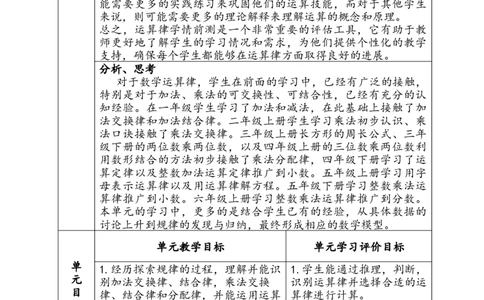 能需要更多的实践练习来巩固他们的运算技能，而对于其他学生
来说，则可能需要更多的理论解释来理解运算的概念和原理。
总之，运算律学情前测是一个非常重要的评估工具，它有助于教
师更好地了解学生的学习情况和需求，为他们提供个性化的教学
支持，确保每个学生都能够在运算律方面取得良好的进展。
分析、思考
对于数学运算律，学生在前面的学习中，已经有广泛的接触，
特别是对于加法、乘法的可交换性、可结合性，已经有充分的认
知经验。在一年级学生学习了加法和减法，在此基础上接触了加
法交换律和加法结合律。二年级上册学生学习乘法初步认识、乘
法口诀接触了乘法交换律。三年级上册长方形的周长公式、三年
级下册的两位数乘两位数，以及四年级上册的三位数乘两位数利
用数形结合的方法初步接触了乘法分配律，四年级下册学习了运
算定律以及整数加法运算定律推广到小数。五年级上册学习用字
母表示运算律以及用运算律解方程。五年级下册学习整数乘法运
算律推广到小数。六年级上册学习整数乘法运算律推广到分数。
本单元的学习中，更多的是结合学生已有的经验，从具体数据的
讨论上升到规律的发现与归纳，最终形成相应的数学模型。
单元目
单元教学目标
单元学习评价目标
1.经历探索规律的过程，理解并能识
别加法交换律、结合律，乘法交换
律、结合律和分配律，并能运用运算
1.学生能通过推理，判断，
识别运算律并选择合适的运
算律进行计算。